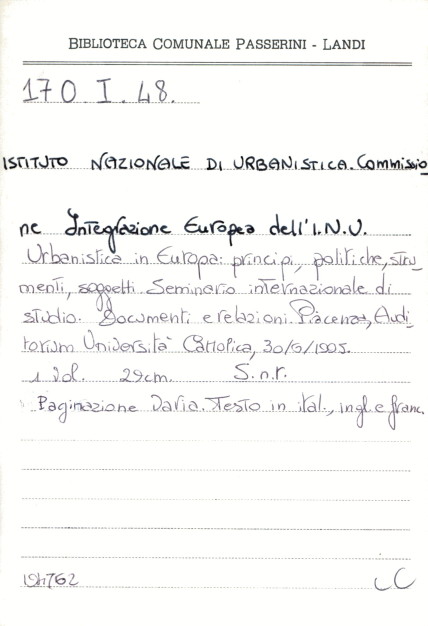 BIBLIOTECA COMUNALE PASSERINI - LANDI
170 I. 48.
ISTITUTO NAZIONALE DI URBANISTICA. Commissio
ne Integrazione Europea dell'I.N.U.
Urbanistica in Europa: principi, politiche, stru_
menti, soggetti. Seminario internazionale di
studio. Documenti e relazioni. Piacenza, Audi_
torium Università Cattolica,
1 vol. 29cm. S.n.r.
Paginazione varia. Testo in ital., ingl. e franc.